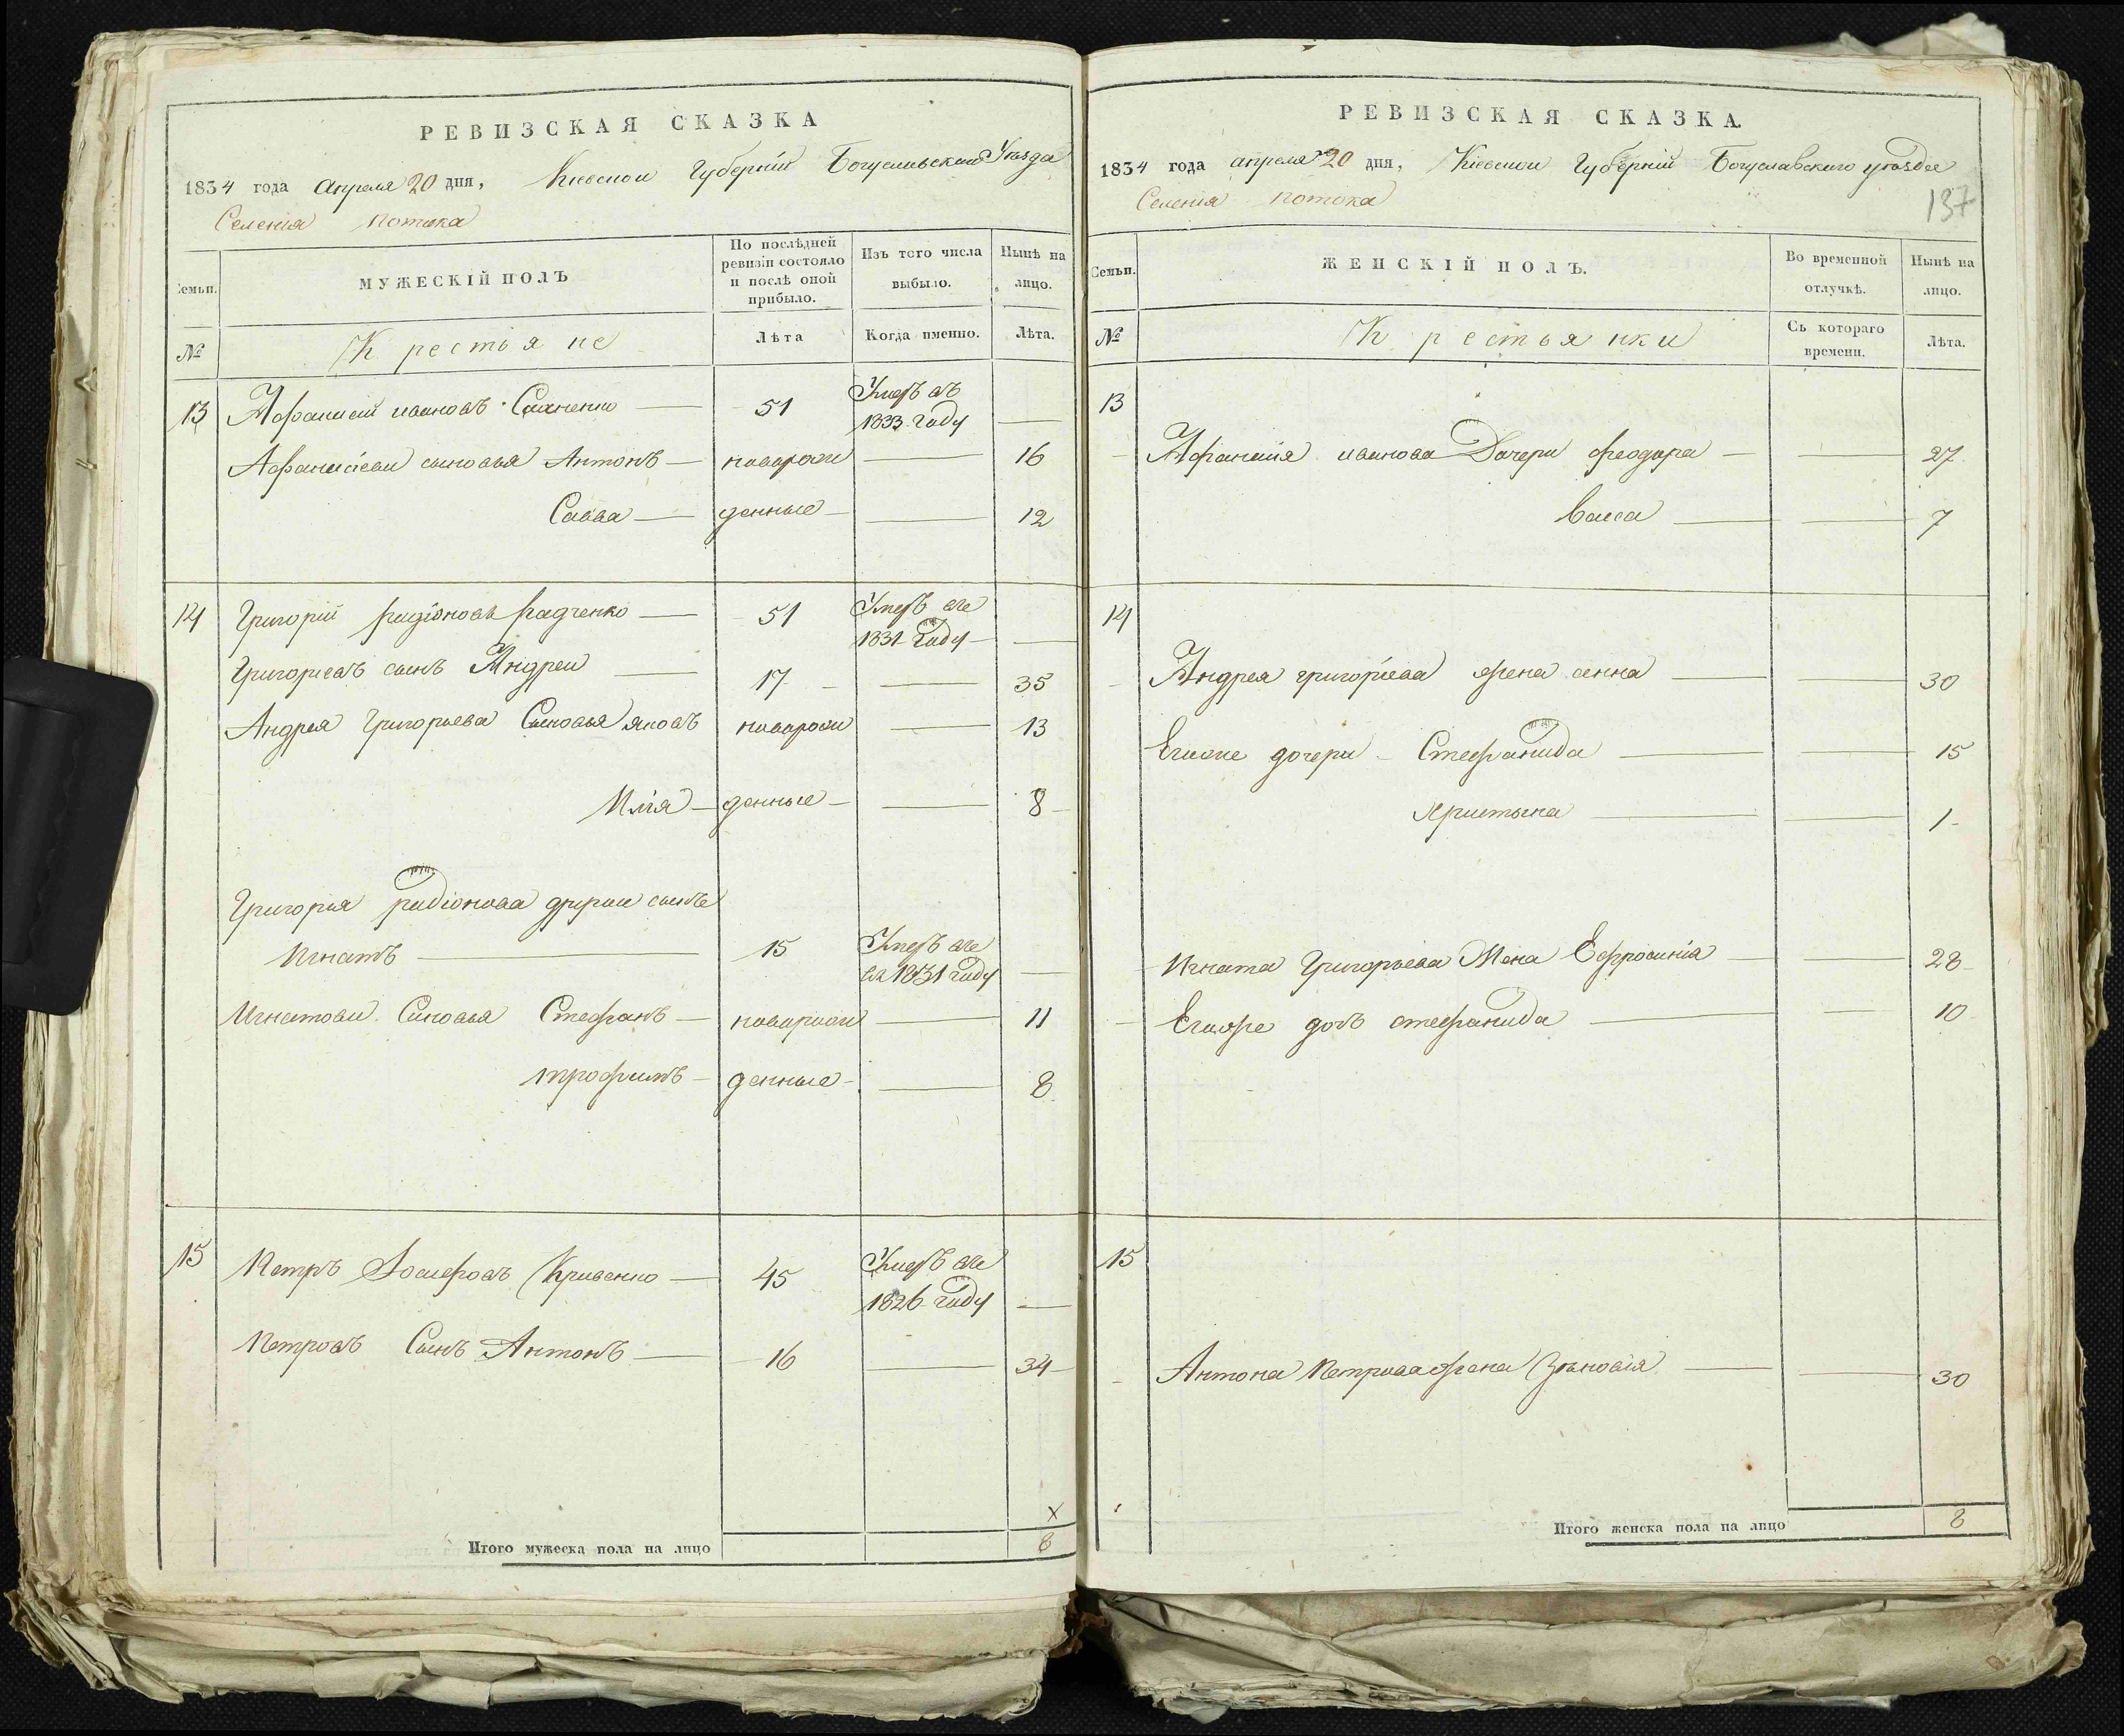 РЕВИЗСКАЯ СКАЗКА
1834 года апреля 20 дня, Киевской Губерніи Богуславскаго Уезда
Селенія Потока
Семьи.
МУЖЕСКІЙ ПОЛЪ
По послѣдней ревизіи состояло и послѣ оной прибыло.
Изъ того числа выбыло.
Нынѣ на лицо.
№
Крестьяне
Лѣта
Когда именно.
Лѣта.
13 Афанасий ивановъ 51 Умеръ въ
1833 году
Афанасіеви сыновья Антонъ новорож 16
Савва денные 12
14 Григорій радіоновъ Радченко 51 Умеръ
1831 году
Григориевъ сынъ Андреи 17 35
Андрея Григорьева Сыновья яковъ новорож 13
Илія денные 8
Григорія радіонова другии сынъ
Игнатъ 15 Умеръ
1831 году
Игнатови Синовья Стефанъ новорож 11
трофимъ денные 8
15 Петръ Іосифовъ Кривенко 45 Умеръ
1826 году
Петровъ Сынъ Антонъ 16 34
х
Итого мужеска пола на лицо 8
РЕВИЗСКАЯ СКАЗКА.
1834 года апреля 20 дня, Киевской Губерніи Богуславскаго уезда
Селенія потока
137
Семьи.
ЖЕНСКІЙ ПОЛЪ.
Во временной отлучкѣ.
Нынѣ на лицо.
№
Крестьянки
Съ котораго времени.
Лѣта.
13
Афанасия иванова Дочери феодора 27
Васса 7
14
Андрея григоріева жена анна 30
Егиоже дочери Стефанида 15
христына 1
Игната Григорьева Жена Ефросинія 28
Егиоже дочь стефанида 10
15
Антона Петрова жена Зѣновія 30
Итого женска пола на лицо 8